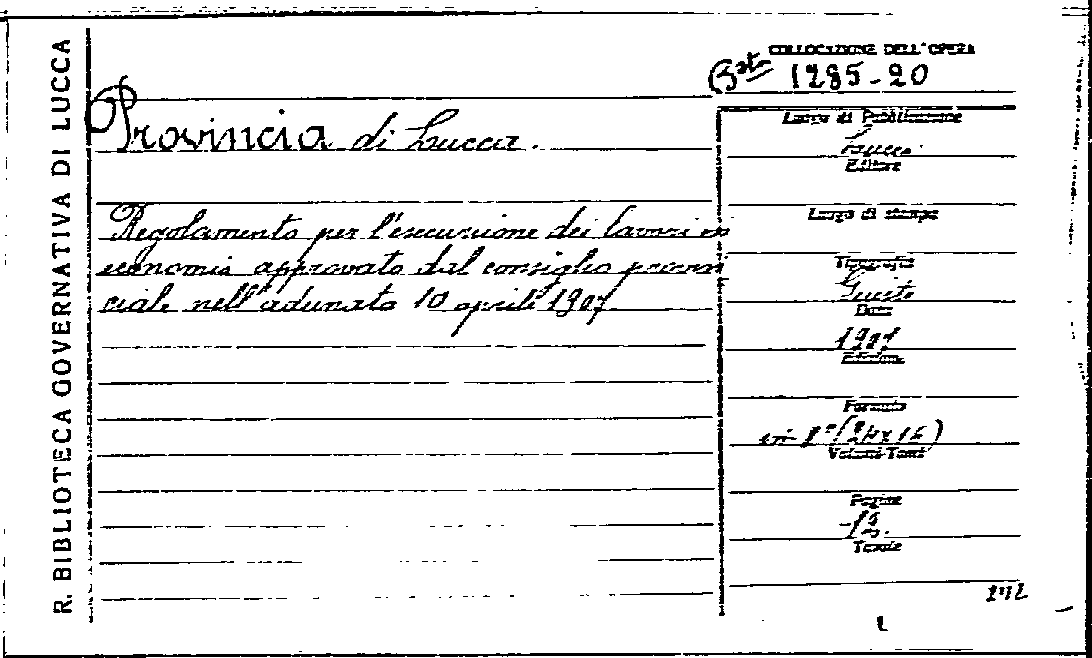 R. BIBLIOTECA GOVERNATIVA DI LUCCA
COLLOCAZIONE DELL'OPERA
Bta 1285-20
Provincia di Lucca.
Regolamento per l'esecuzione dei lavori in
economia approvato dal consiglio provin
ciale nell'adunata 10 aprile 1907.
Luogo di Pubblicazione
Lucca
Editore
Luogo di stampa
Tipografia
Giusti
Data
1907
Edizione
Formato
in 8° (24x16)
Volumi-Tomi
Pagine
12.
Tavole